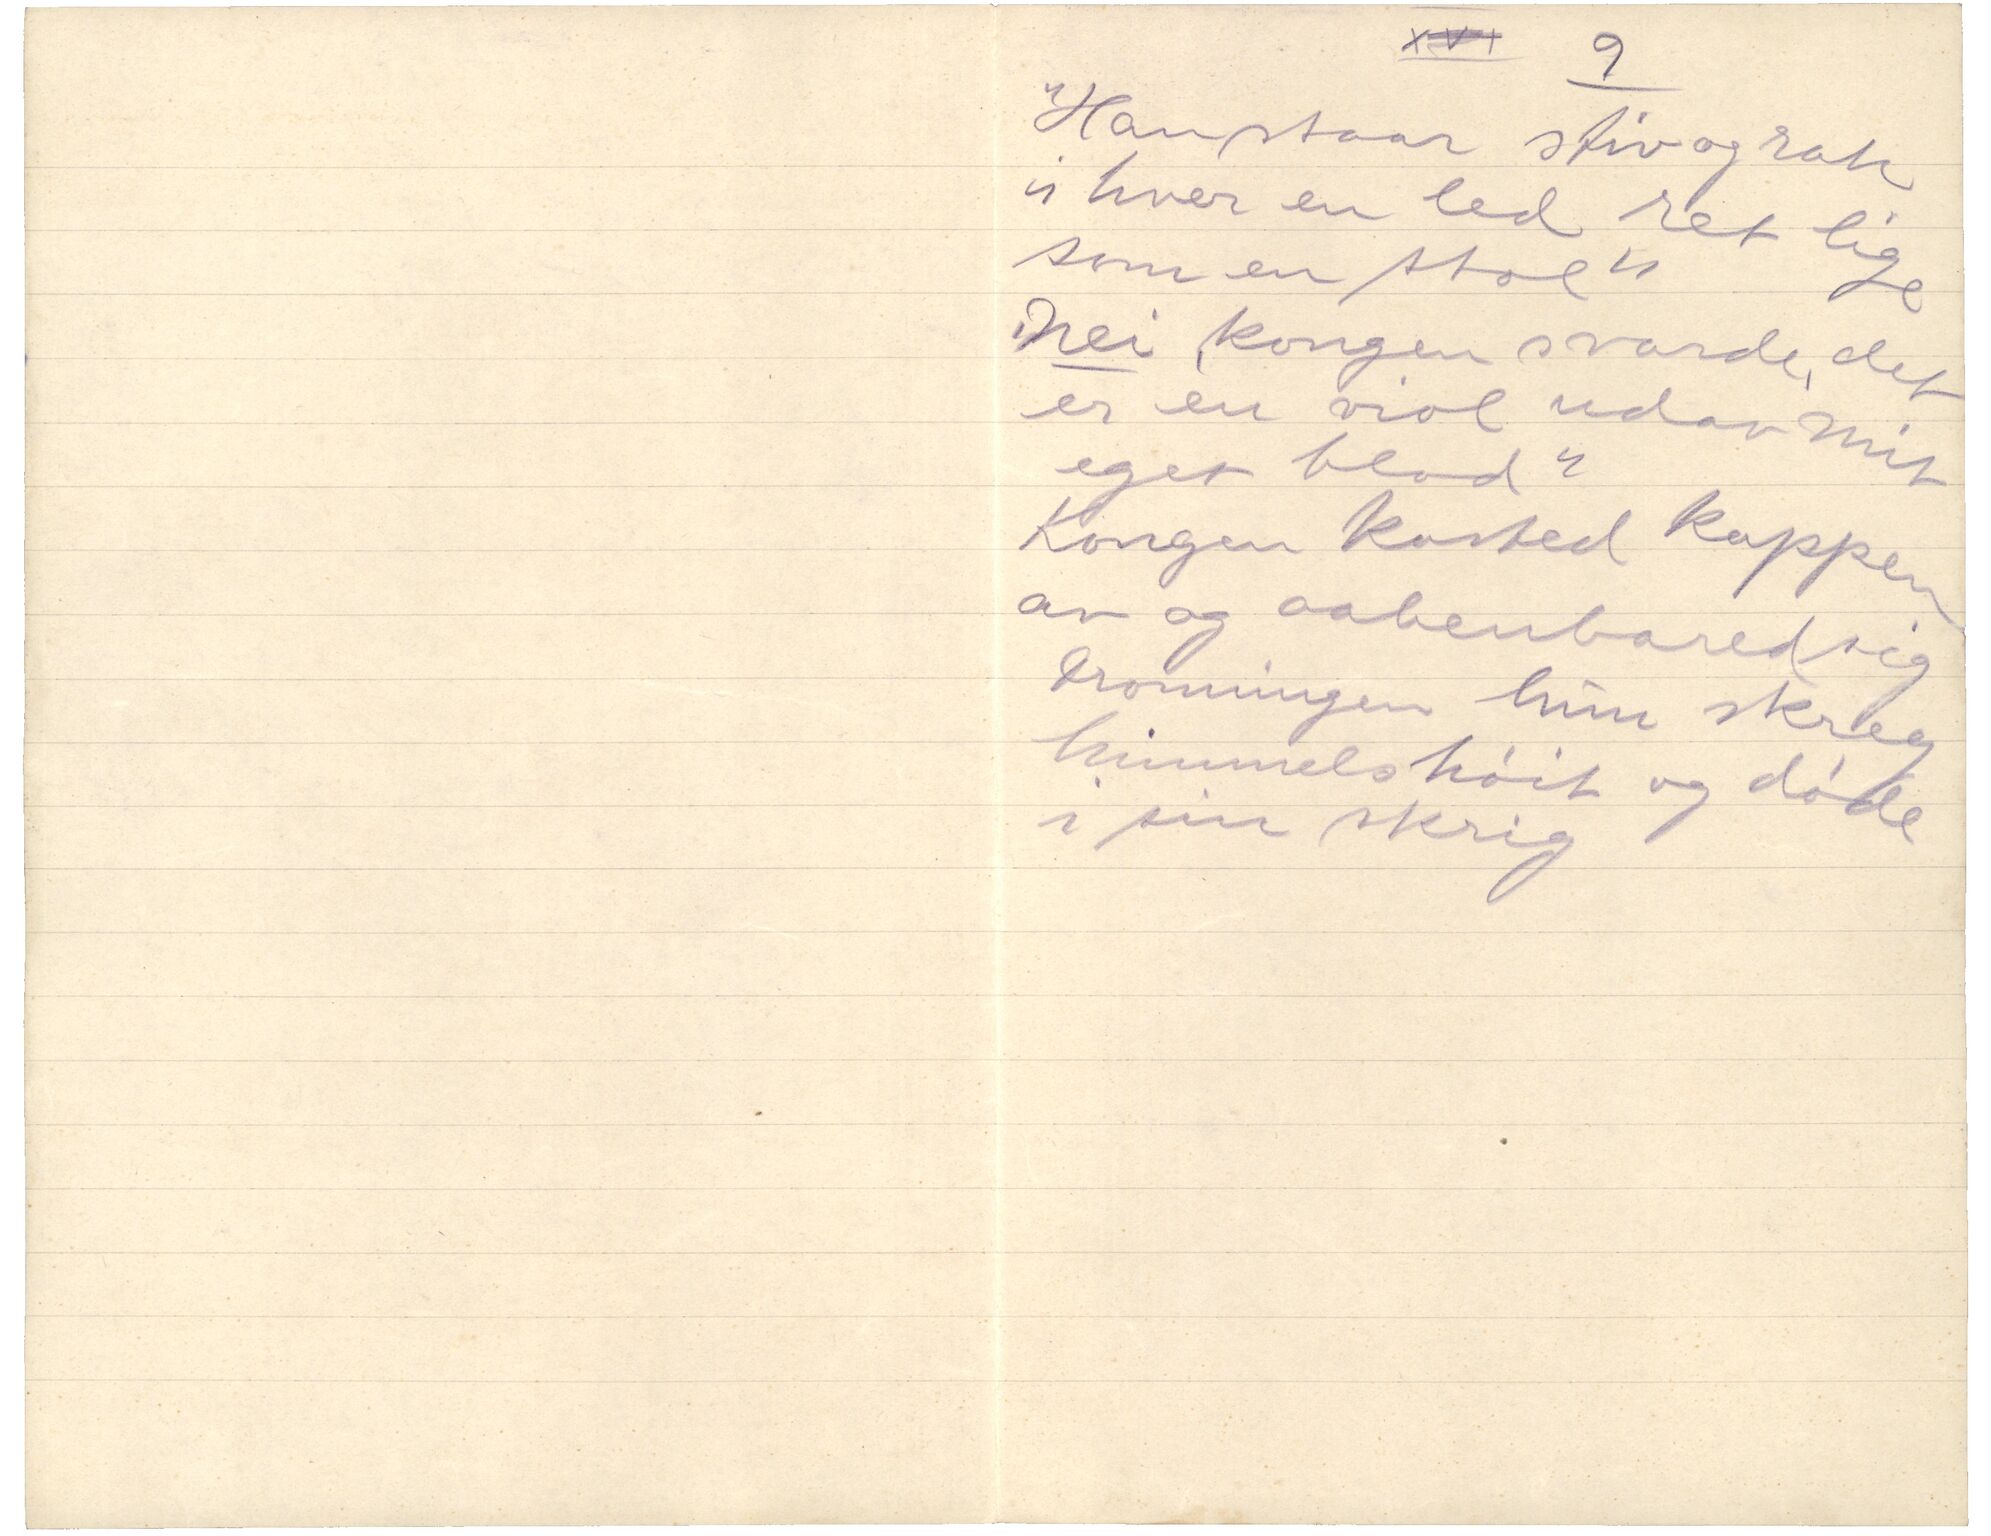 XVI 9
"Han staar stiv og rak
i hver en led ret lige
som en stol"
"Nei, kongen svarde, det
er en viol ud av mit
eget blod"
Kongen kasted kappen
av og aabenbared sig
Dronningen hun skreg
himmelshöit og döde
i sin skrig